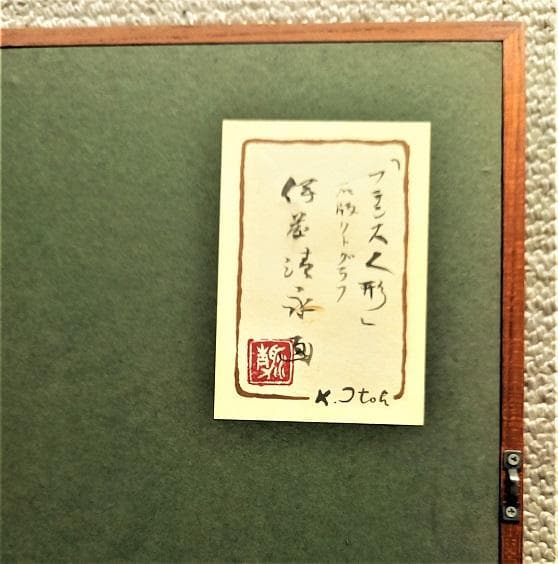 「フランス人形」
石版リトグラフ
伊藤清永画
K.Itoh